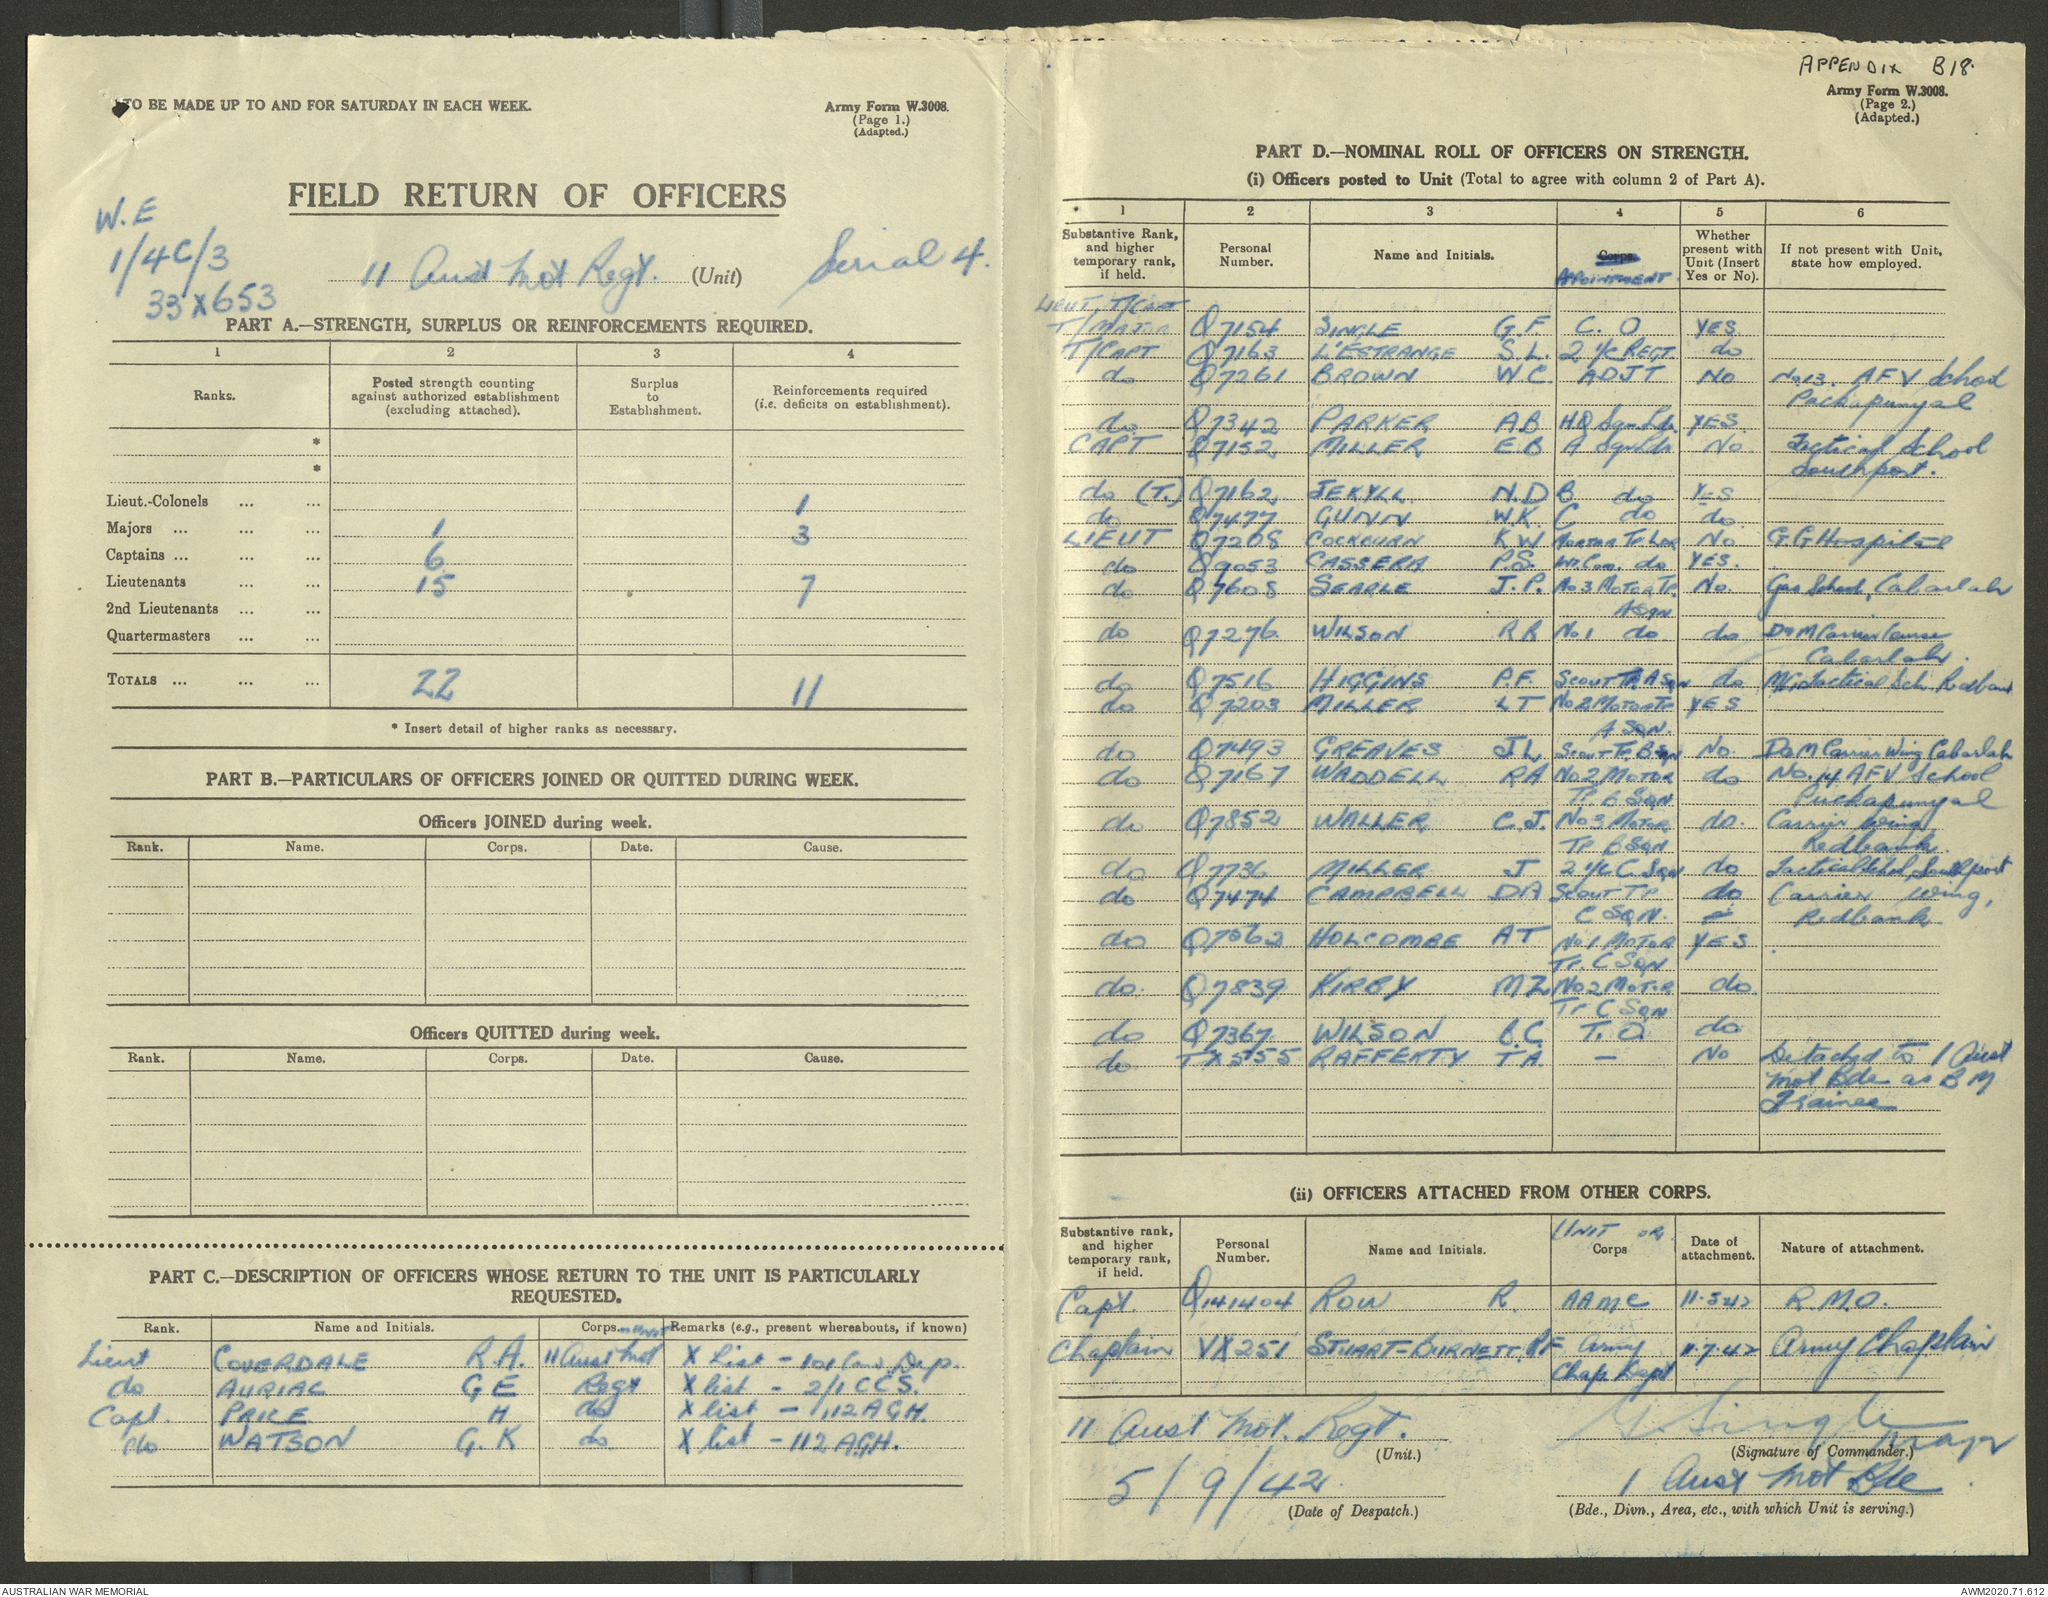 TO BE MADE UP TO AND FOR SATURDAY IN EACH WEEK.
Army Form W.3008.
(Page 1.)
(Adapted.)
FIELD RETURN OF OFFICERS
W.E
1/4C/3
33 X 653
11 Aust Mot Regt. (Unit) Serial 4.
PART A.—STRENGTH, SURPLUS OR REINFORCEMENTS REQUIRED.
1 2 3 4
Ranks. Posted strength counting against authorized establishment (excluding attached). Surplus to Establishment. Reinforcements required (i.e. deficits on establishment).
*
*
Lieut.-Colonels ... ... 1
Majors ... ... ... 1 3
Captains ... ... ... 6
Lieutenants ... ... 15 7
2nd Lieutenants ... ...
Quartermasters ... ...
TOTALS ... ... ... 22 11
* Insert detail of higher ranks as necessary.
PART B.—PARTICULARS OF OFFICERS JOINED OR QUITTED DURING WEEK.
Officers JOINED during week.
Rank. Name. Corps. Date. Cause.
Officers QUITTED during week.
Rank. Name. Corps. Date. Cause.
PART C.—DESCRIPTION OF OFFICERS WHOSE RETURN TO THE UNIT IS PARTICULARLY
REQUESTED.
Rank. Name and Initials. Corps. Remarks (e.g., present whereabouts, if known)
Lieut COVERDALE R.A. 11 Aust Mot X List - 101 Con. Dep.
do AURIAC G E Regt X list - 2/1 CCS.
Capt. PRICE H do X list - 112 A.G.H.
do WATSON G. K do X list - 112 A.G.H.
APPENDIX B18.
Army Form W.3008.
(Page 2.)
(Adapted.)
PART D.—NOMINAL ROLL OF OFFICERS ON STRENGTH.
(i) Officers posted to Unit (Total to agree with column 2 of Part A).
1 2 3 4 5 6
Substantive Rank, and higher temporary rank, if held. Personal Number. Name and Initials. Corps. APOINTMENT Whether present with Unit (Insert Yes or No). If not present with Unit, state how employed.
LIEUT, T/CAPT
T/MAJOR Q7154 SINGLE G. F C. O YES
T/CAPT Q7163 L'ESTRANGE S. L. 2 i/c REGT do
do Q7261 BROWN W C. ADJT No No.13. AFV School
Puckapunyal
do. Q7342 PARKER A B H.Q Sqn Ldr. YES.
CAPT Q7152 MILLER E B A Sqn Ldr No Tactical School
Southport.
do (T.) Q7162 JEKYLL N. D B do YES
do Q7477 GUNN W.K. C do do.
LIEUT Q7208 COCKBURN K W MORTAR TP. LDR No GG Hospital
do Q9053 CASSERA P.S. W Com. do YES.
do Q7608 SEARLE J. P. No 3 MOTOR TP. No. Gas School, Cabarlah
A SQN
do Q7276 WILSON R R No 1 do do D & M Carrier Course
Cabarlah.
do Q7516 HIGGINS P. F. SCOUT TP. A SQN do Tactical Sch. Redbank
do Q7203 MILLER L T No 2 MOTOR TP YES
A SQN.
do Q7493 GREAVES J. L SCOUT TP. B SQN No. D & M Carrier Wing Cabarlah
do Q7167 WADDELL R A No 2 MOTOR do No. 14 AFV School
TP B SQN Puckapunyal
do Q7852 WALLER C. J. No 3 MOTOR do. Carrier Wing
TP B SQN Redbank.
do Q7736 MILLER J 2 i/c C. SQN do Tactical School, Southport
do Q7474 CAMPBELL D A SCOUT TP do Carrier Wing,
C SQN. Redbank
do Q7562 HOLCOMBE A T No. 1 MOTOR YES
TP. C SQN
do. Q7839 KIRBY M Z No 2 MOTOR do
TP C SQN
do Q7367 WILSON B. C. T. O. do
do TX5155 RAFFERTY T A. — No Detached to 1 Aust
Mot Bde as B M
Trainee
(ii) OFFICERS ATTACHED FROM OTHER CORPS.
Substantive rank, and higher temporary rank, if held. Personal Number. Name and Initials. UNIT OR Corps Date of attachment. Nature of attachment.
Capt. Q141404 ROW R. AAMC 11.5.42 R. M. O.
Chaplain VX251 STUART-BURNETT. R F Army 11.7.42 Army Chaplain
Chap. Dept
11 Aust Mot. Regt. G Single Major
(Unit.) (Signature of Commander.)
5/9/42. 1 Aust Mot Bde
(Date of Despatch.) (Bde., Divn., Area, etc., with which Unit is serving.)
AUSTRALIAN WAR MEMORIAL AWM2020.71.612